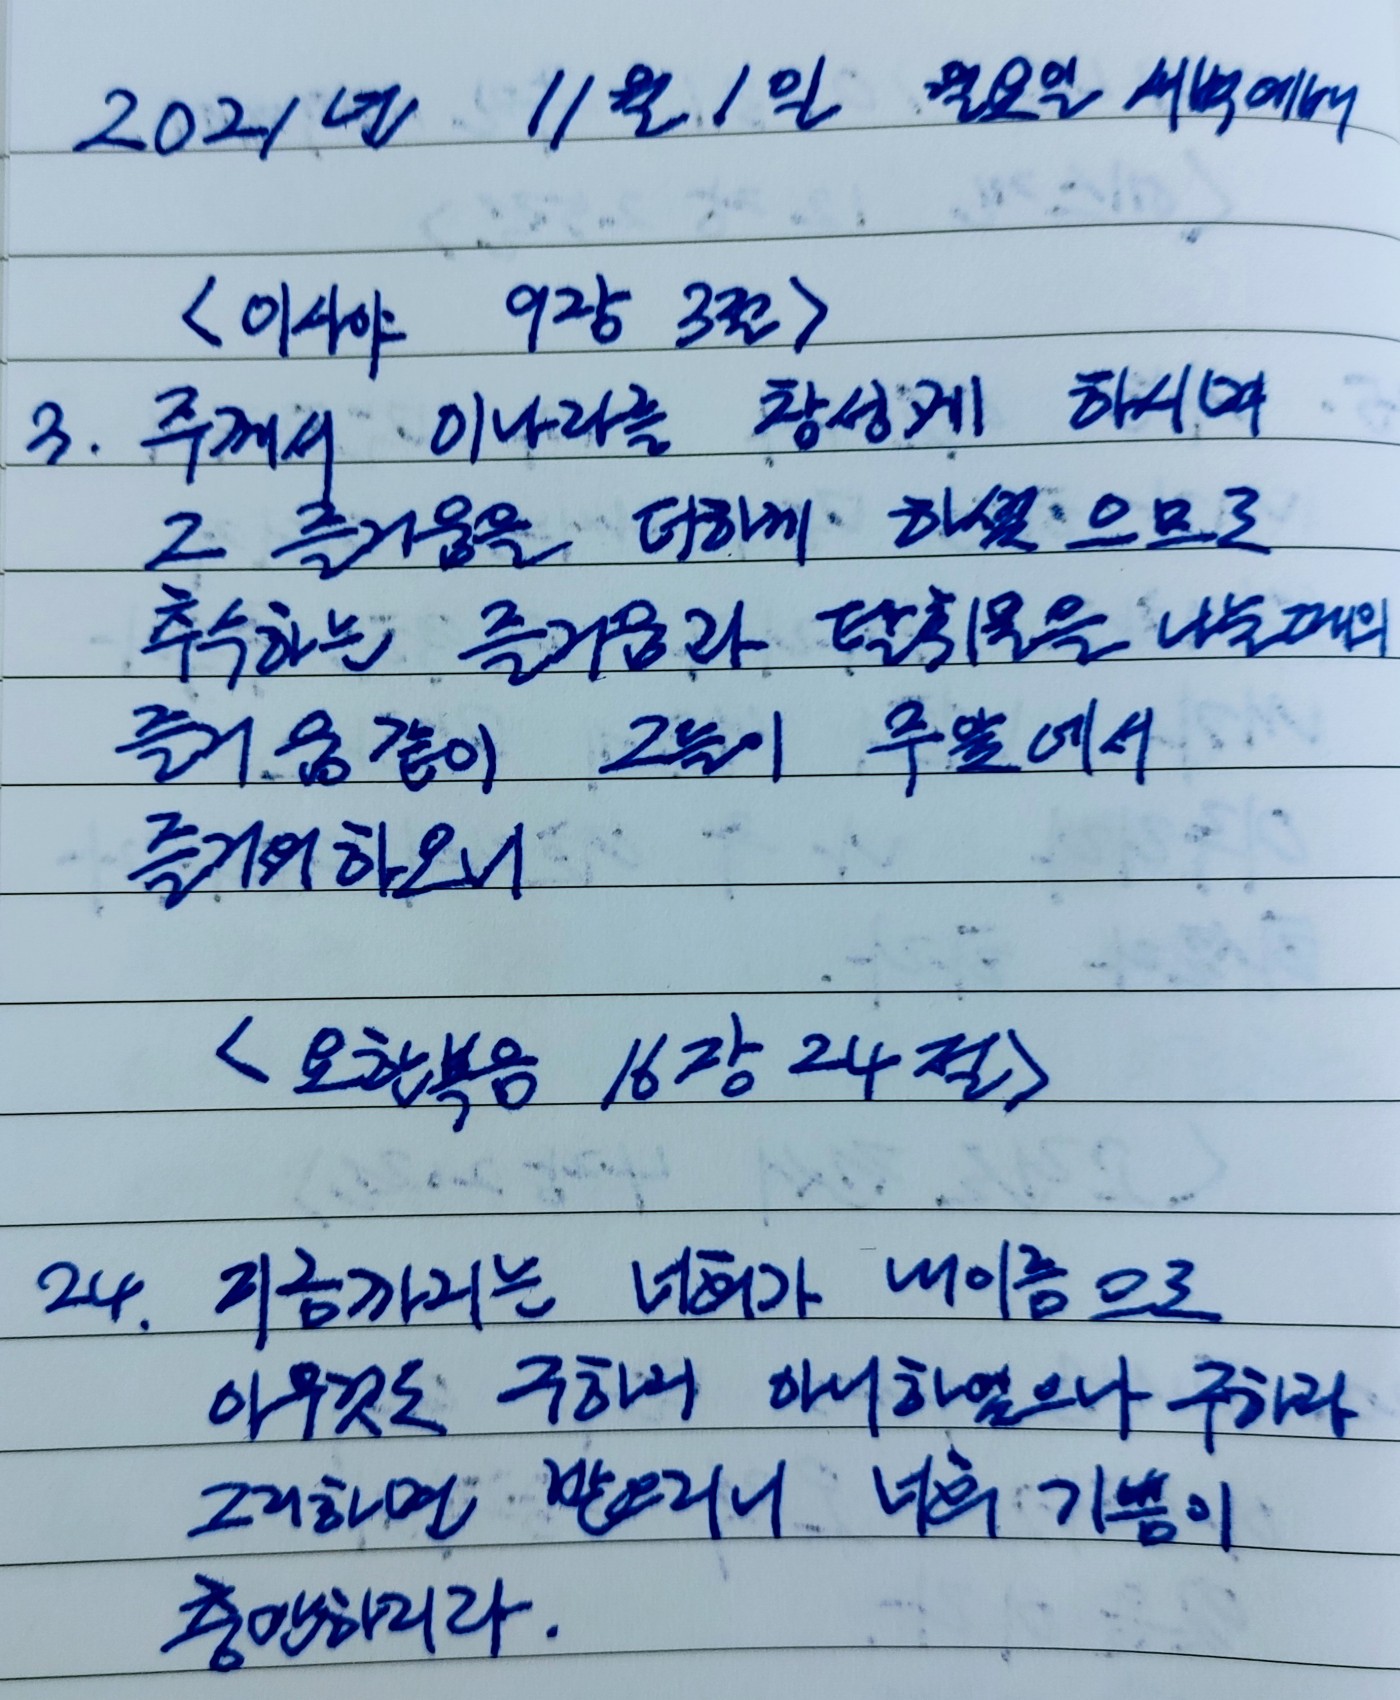 2021년 11월 1일 월요일 새벽예배
<이사야 9장 3절>
3. 주께서 이나라를 창성케 하시며
그 즐거움을 더하게 하셨으므로
추수하는 즐거움과 탈취물을 나눌때의
즐거움같이 그들이 주앞에서
즐거워하오니
<요한복음 16장 24절>
24. 지금까지는 너희가 내이름으로
아무것도 구하지 아니하였으나 구하라
그리하면 받으리니 너희 기쁨이
충만하리라.